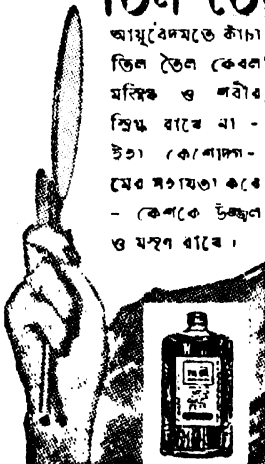 তিল তৈ
আয়ুর্বেদমতে কাঁচা
তিল তৈল কেবল
মস্তিষ্ক ও শরীর
স্নিগ্ধ রাখে না -
ইহা কেশোদ্গ-
মের সহায়তা করে
- কেশকে উজ্জ্বল
ও মসৃণ রাখে।